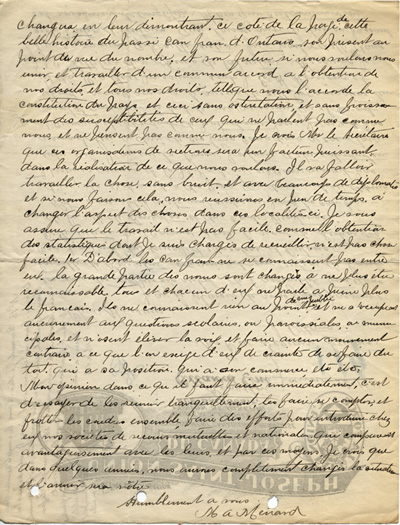 changera en leur démontrant, ce coté de la page, de cette
belle histoire du passé can fran. d'Ontario, son présent au
point de vue du nombre, et son futur si nous voulons nous
unir et travailler d'un commun accord a l'obtention de
nos droits et tous nos droits, telle que nous l'accorde la
constitution du pays, et ceci sans ostentation, et sans froisse-
ment des susceptibilités de ceux qui ne parlent pas comme
nous et ne pensent pas comme nous. Je crois Mr le Secrétaire
que ces organisations de secteurs sera un facteur puissant
dans la réalisation de ce que nous voulons. Il va falloir
travailler la chose sans bruit, et avec beaucoup de diplomatie
et si nous faisons cela, nous réussirons en peu de temps, à
changer l'aspect des choses dans ces localités ci. Je vous
assure que le travail n'est pas facile, comme l'obtention
des statistiques dont je suis chargé de recueillir n'est pas chose
facile. 1er D'abord les can fran ne se connaissent pas entre
eux. la grande partie des noms sont changés à ne plus être
reconnaissable, tous et chacun d'eux ne parle a peine plus
le français. Ils ne connaissent rien au point de vue public et ne s'occupent
aucunement aux questions scolaires, ou paroissiales, ou muni-
cipales, et n'osent élever la voix et faire aucun mouvement
contraire à ce que l'on exige d'eux de crainte de se faire du
tort, qui a sa position, qui a son commerce etc etc.
Mon opinion dans ce qu'il faut faire immédiatement, c'est
d'essayer de les réunir tranquillement, les faire se compter, et
frotter les coudes ensemble, faire des efforts pour introduire chez
eux nos sociétés de secours mutuelles et nationales qui comparent
avantageusement avec les leurs, et par ces moyens je crois que
dans quelques années, nous aurons complètement changé la situation
et
Humblement a vous
M A Ménard
ST JOSEPH